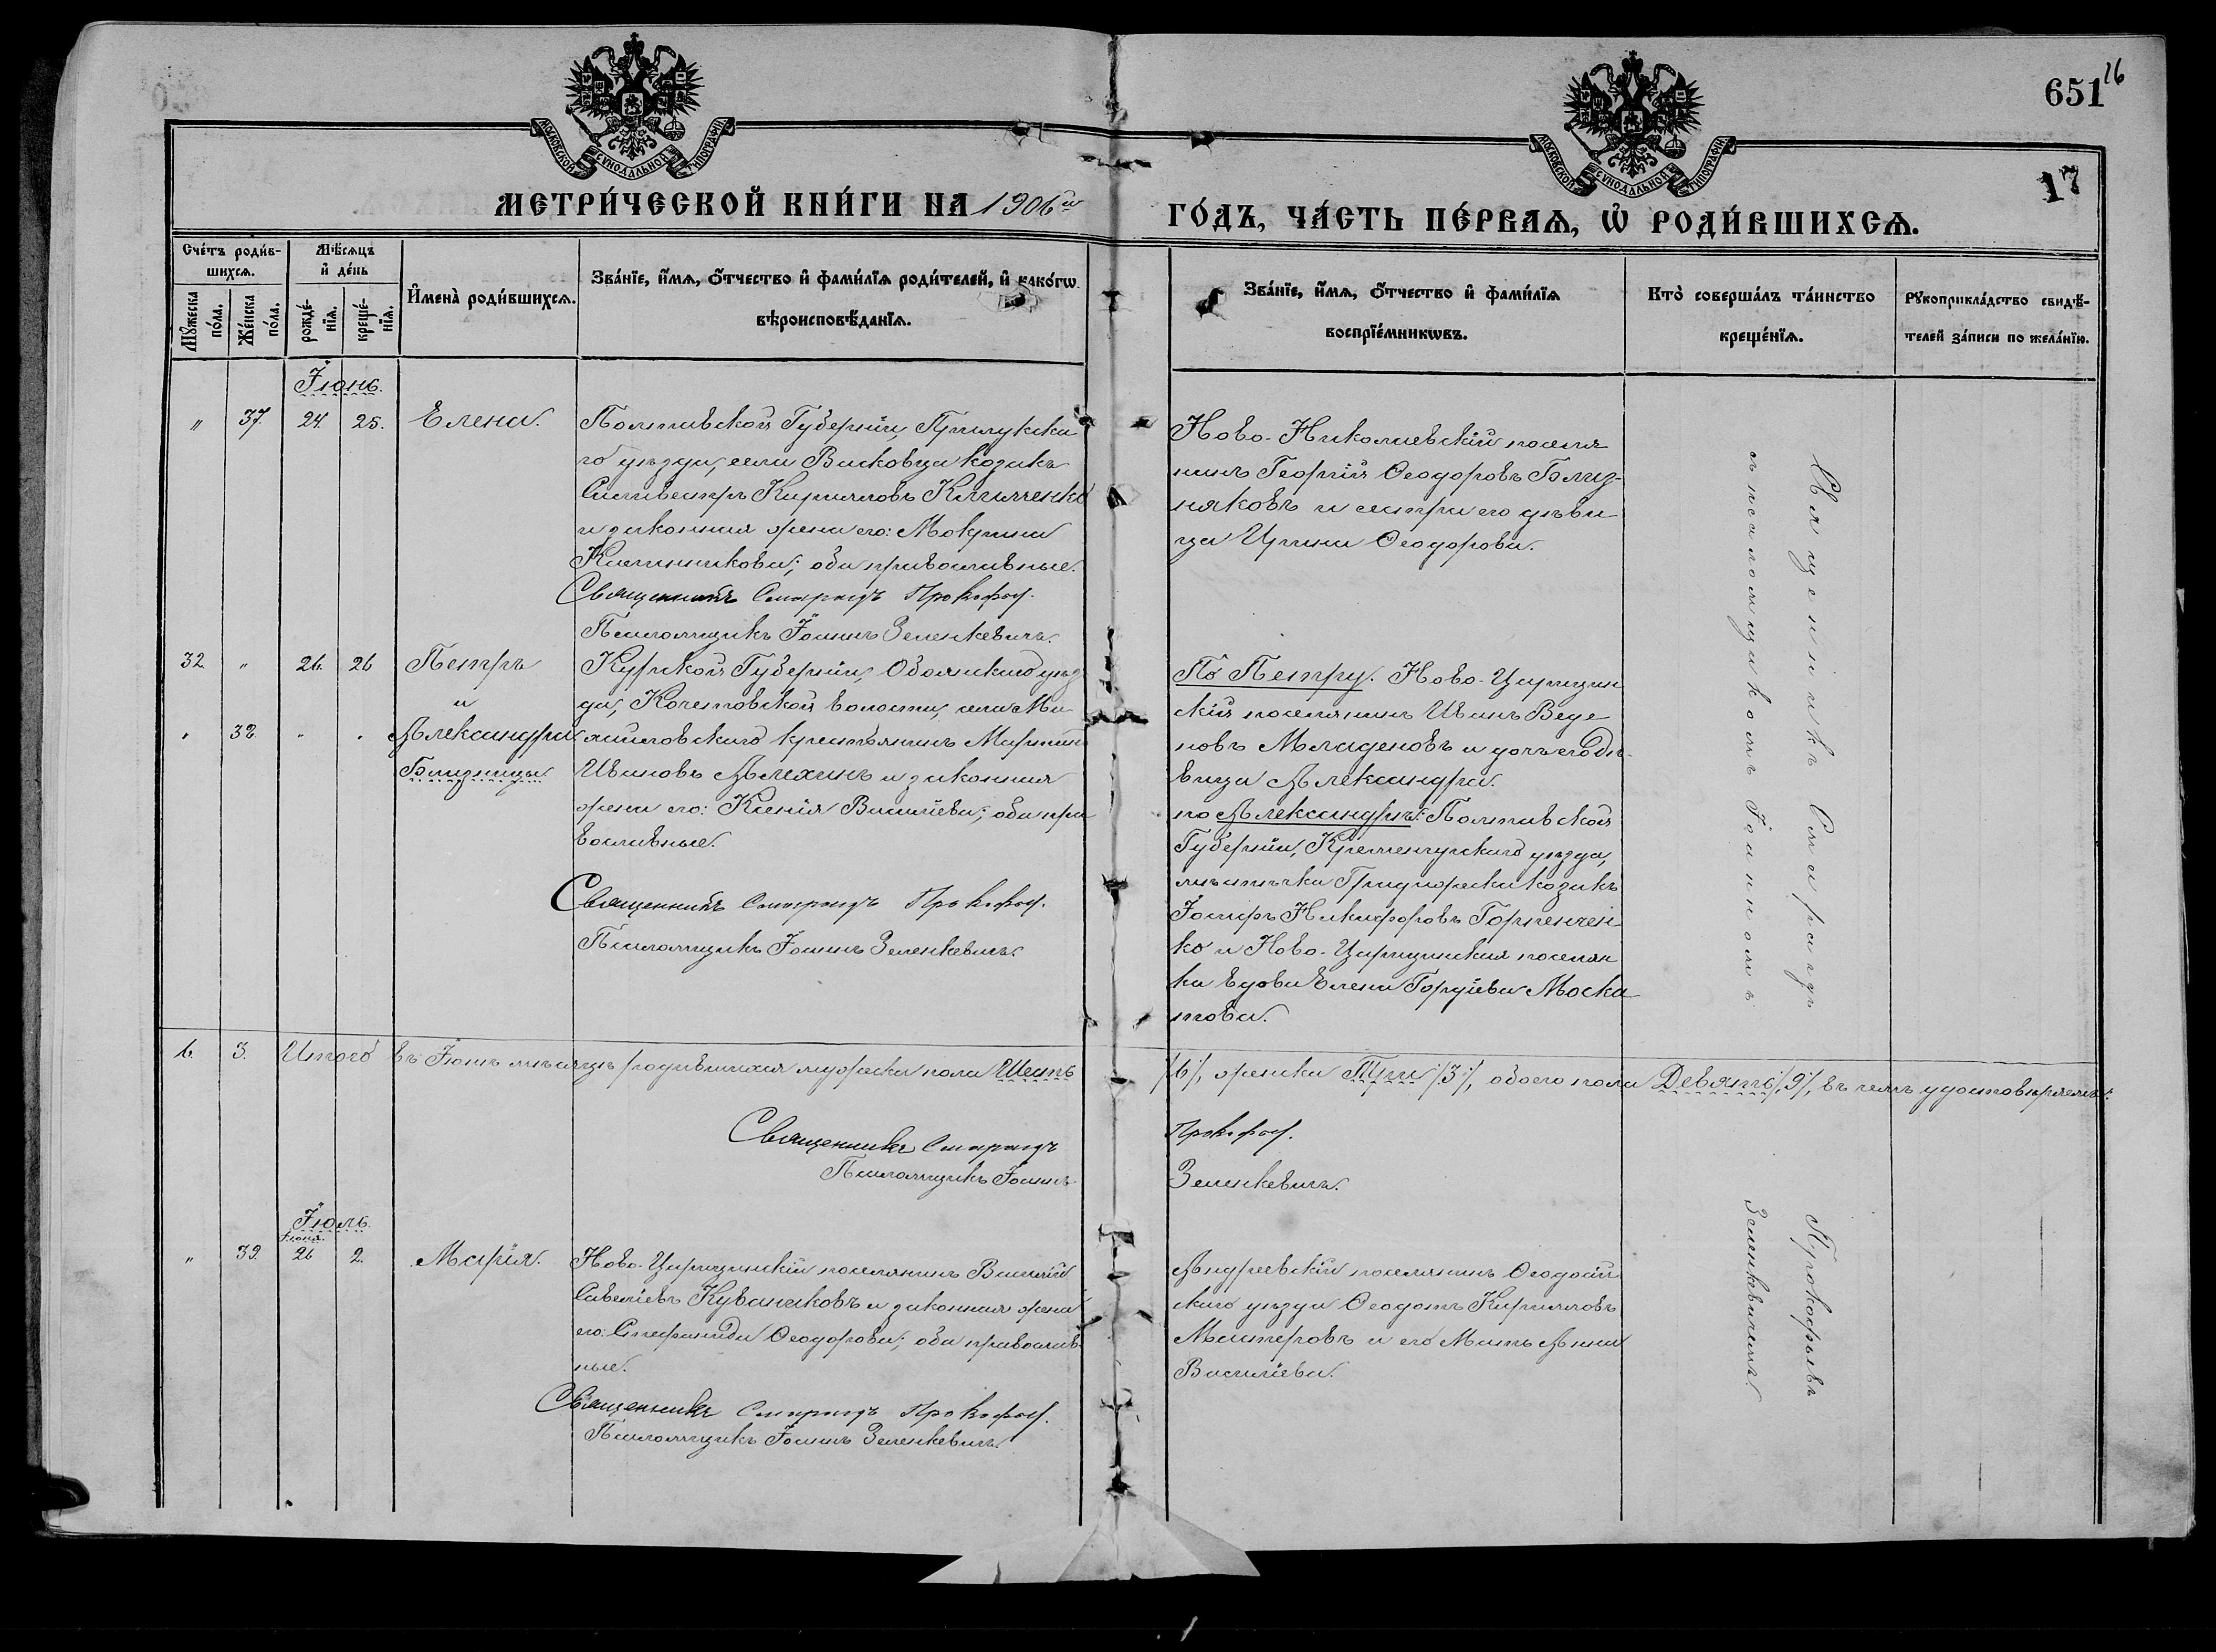 651
16
17
МОСКОВСКОЙ СѴНОДАЛЬНОЙ ТИПОГРАФІИ
МОСКОВСКОЙ СѴНОДАЛЬНОЙ ТИПОГРАФІИ
МЕТРИ́ЧЕСКОЙ КНИ́ГИ НА 1906й
ГО́ДЪ, ЧА́СТЬ ПЕ́РВАѦ, Ѡ҆ РОДИ́ВШИХСѦ.
Сче́тъ роди́в-
шихсѧ.
Мꙋ́жеска
по́ла.
Же́нска
по́ла.
Мѣ́сѧцъ
и҆ де́нь
рожде́-
нїѧ.
креще́-
нїѧ.
И҆мена̀ роди́вшихсѧ.
Зва́нїе, и҆́мѧ, ѻ҆́тчество и҆ фами́лїѧ роди́телей, и҆ како́гѡ
вѣроисповѣ́данїѧ.
Зва́нїе, и҆́мѧ, ѻ҆́тчество и҆ фами́лїѧ
воспрїе́мникѡвъ.
Кто̀ соверша́лъ та́инство
креще́нїѧ.
Рꙋкоприкла́дство свидѣ́-
телей за́писи по жела́нїю.
Іюнь.
" 37. 24. 25. Елена.
Полтавской Губерніи, Прилукска
го уѣзда, села Васковца козакъ
Силивестръ Кирилловъ
и законная жена его: Мокрина
обѣ православные.
Священникъ Смарагдъ Прокофьев.
Псаломщикъ Іоаннъ Зеленкевичъ.
Ново-Николаевскій поселя
нинъ Георгій Ѳеодоровъ Близ-
няковъ и сестра его дѣви
ца Ирина Ѳеодорова.
32 " 26. 26 Петръ
и
" 38. " " Александра
Близнецы.
Курской Губерніи, Обоянскаго уѣз
да, Кочетовской волости, села Ми
хайловскаго крестьянинъ Мартинъ
Ивановъ Алехинъ и законная
жена его: Ксенія Василіева; оба пра
вославные.
Священникъ Смарагдъ Прокофьев.
Псаломщикъ Іоаннъ Зеленкевичъ.
По Петру. Ново-Царицын
скій поселянинъ Иванъ Веде
новъ Младеновъ и дочь его дѣ-
вица Александра.
по Александрѣ: Полтавской
Губерніи, Кременчугскаго уѣзда,
мѣстечка козакъ
Іосифъ Никифоровъ Горпенчен
ко и Ново-Царицинская поселян
ка вдова Елена Гордіева Моска
това.
6. 3. Итого въ Іюнѣ мѣсяцѣ родившихся мужеска пола Шесть
/6/, женска Три /3/, обоего пола Девять /9/, въ чемъ удостовѣряемъ:
Священникъ Смарагдъ
Прокофьев.
Псаломщикъ Іоаннъ
Зеленкевичъ.
Іюль.
Іюня.
" 39. 26 2. Марія.
Ново-Царицынскій поселянинъ Василій
Савеліевъ Куванчиковъ и законная жена
его: Стефанида Ѳеодорова; оба православ-
ные.
Священникъ Смарагдъ Прокофьев.
Псаломщикъ Іоаннъ Зеленкевичъ.
Андреевскій поселянинъ Ѳеодосій
скаго уѣзда Ѳеодотъ Кирилловъ
и его Мать Анна
Василіева.
Священникъ Смарагдъ Прокофьевъ
съ псаломщикомъ Іоанномъ Зеленкевичемъ.